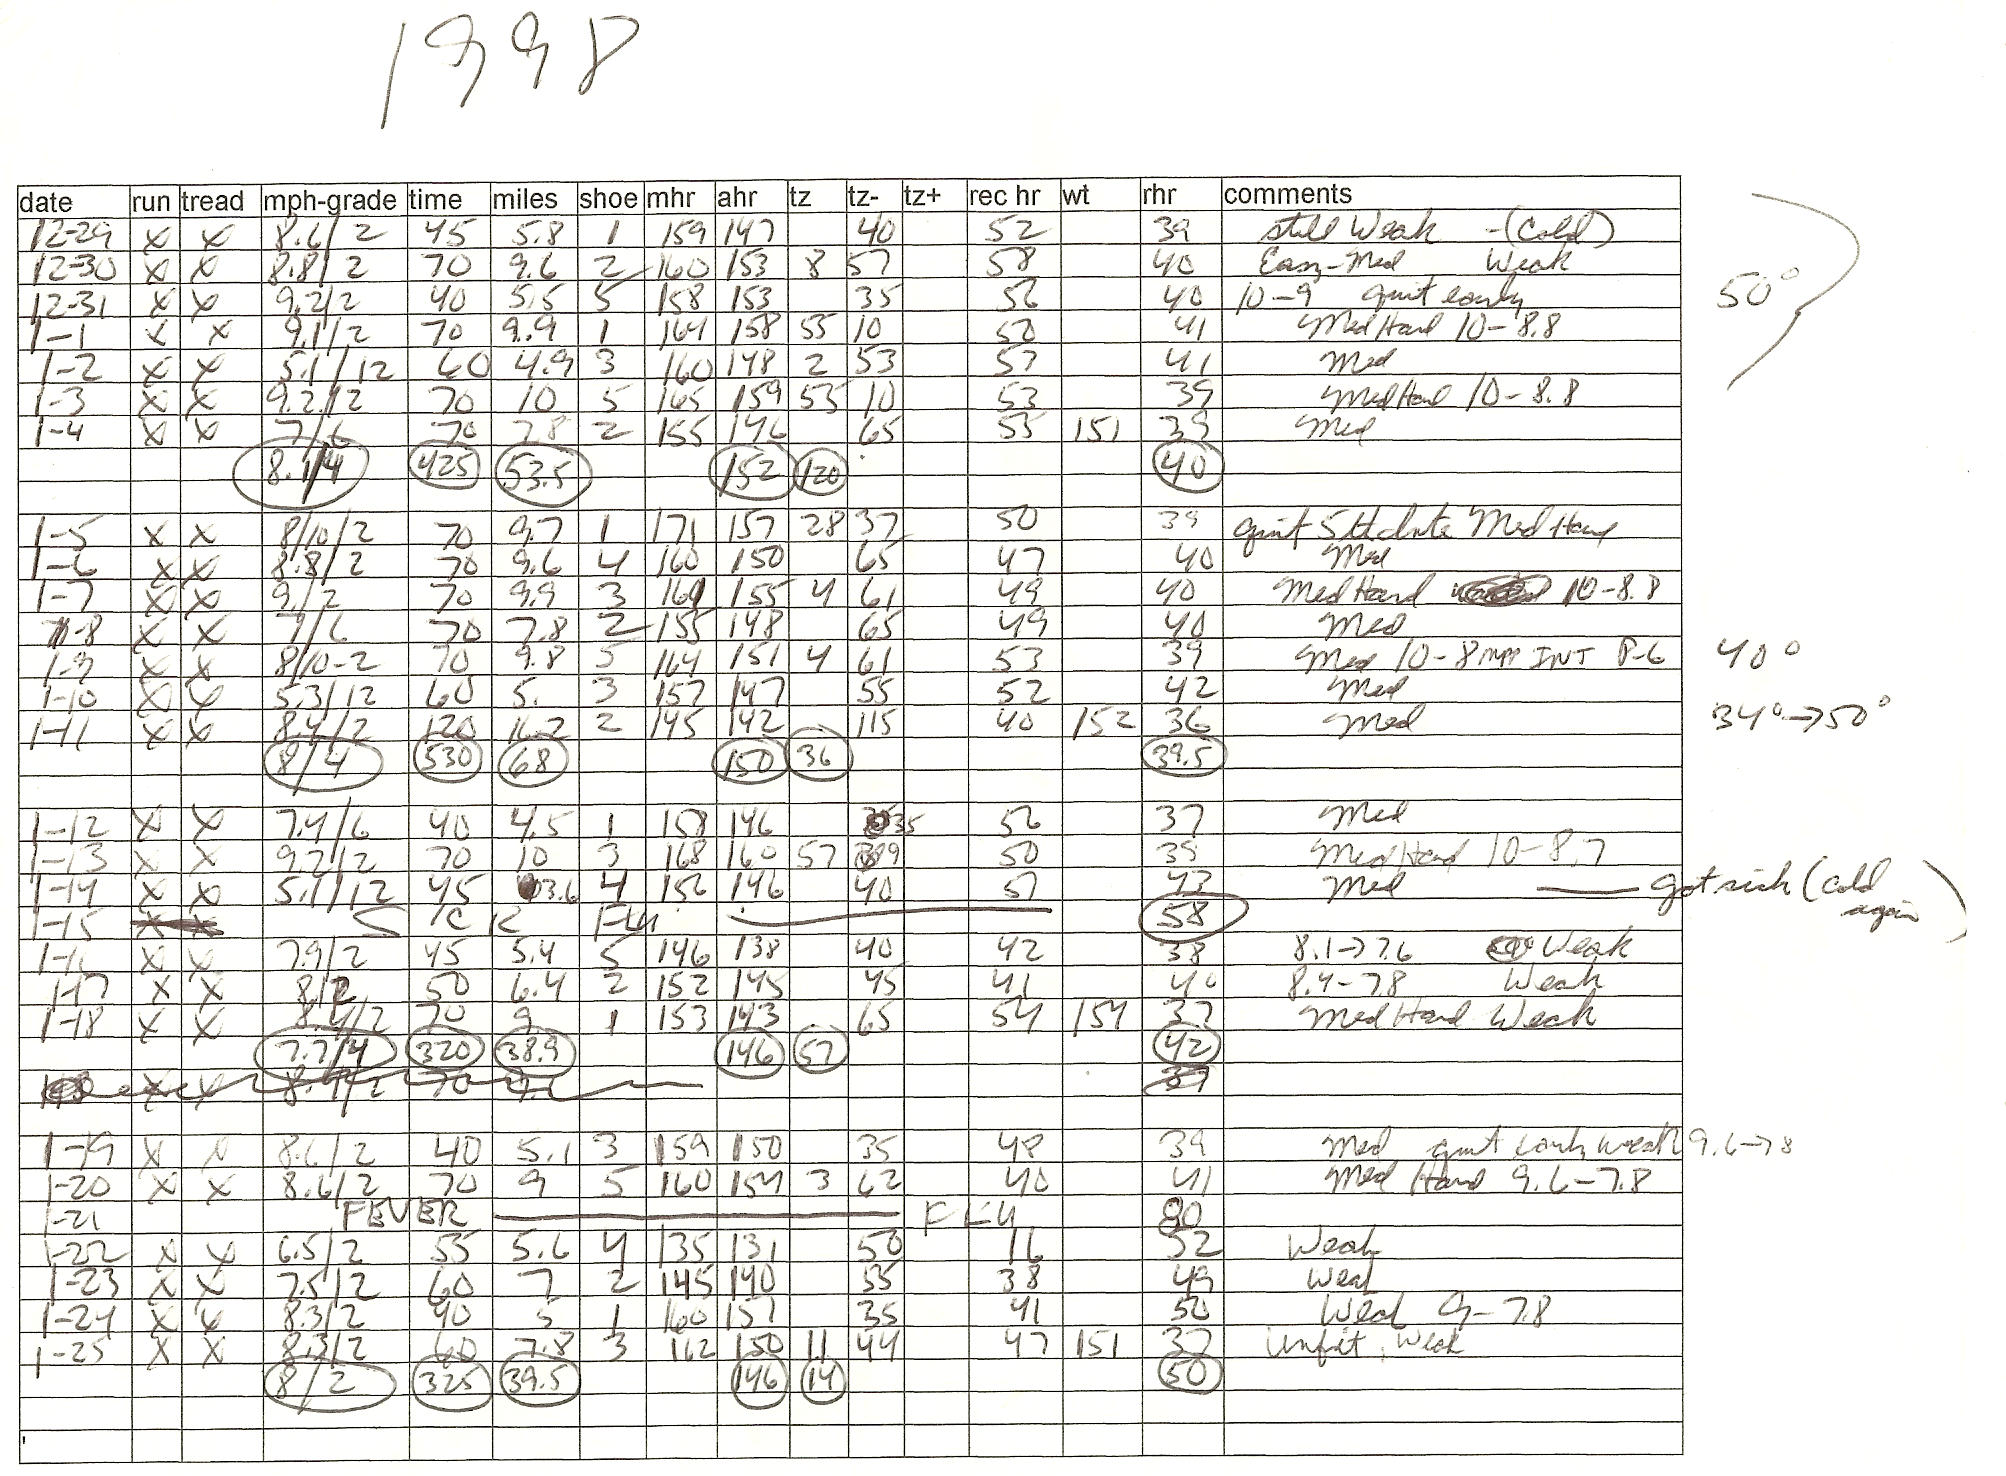 1998
date run tread mph-grade time miles shoe mhr ahr tz tz- tz+ rec hr wt rhr comments
12-29 X X 8.6/2 45 5.8 1 159 147 40 52 39 still Weak -(Cold)
12-30 X X 8.8/2 70 9.6 2 160 153 8 57 58 40 Easy-Med Weak
12-31 X X 9.2/2 40 5.5 5 158 153 35 56 40 10-9 quit early
50°
1-1 X X 9.1/2 70 9.9 1 164 158 55 10 50 41 Med Hard 10-8.8
1-2 X X 5.1/12 60 4.9 3 160 148 2 53 57 41 Med
1-3 X X 9.2/2 70 10 5 165 159 55 10 53 39 Med Hard 10-8.8
1-4 X X 7/6 70 7.8 2 155 146 65 55 151 39 Med
8.1/4 425 53.5 152 120 40
1-5 X X 8/10/2 70 9.7 1 171 157 28 37 50 39 quit Med Hard
1-6 X X 8.8/2 70 9.6 4 160 150 65 47 40 Med
1-7 X X 9/2 70 9.9 3 161 155 4 61 49 40 Med Hard 10-8.8
1-8 X X 7/6 70 7.8 2 155 148 65 49 40 Med
1-9 X X 8/10-2 70 9.8 5 164 151 4 61 53 39 Med 10-8 mph INT P-6 40°
1-10 X X 5.3/12 60 5. 3 157 147 55 52 42 Med
1-11 X X 8.4/2 120 16.2 2 145 142 115 40 152 36 Med 34°→50°
8/4 530 68 150 36 39.5
1-12 X X 7.4/6 40 4.5 1 158 146 35 56 37 Med
1-13 X X 9.2/2 70 10 3 168 160 57 9 50 39 Med Hard 10-8.7
1-14 X X 5.1/12 45 3.6 4 156 146 40 57 43 Med — got sick (cold
again)
1-15 X X SICK FLU 58
1-16 X X 7.9/2 45 5.4 5 146 138 40 42 38 8.1→7.6 Weak
1-17 X X 8/2 50 6.4 2 152 145 45 41 40 8.4-7.8 Weak
1-18 X X 8.4/2 70 9. 1 153 143 65 54 154 37 Med Hard Weak
7.7/4 320 38.9 146 57 42
X X 8.4/2 70 37
1-19 X X 8.6/2 40 5.1 3 159 150 35 48 39 Med quit early weak 9.6→78
1-20 X X 8.6/2 70 9 5 160 154 3 62 40 41 Med Hard 9.6-7.8
1-21 FEVER FLU 80
1-22 X X 6.5/2 55 5.6 4 135 131 50 16 52 Weak
1-23 X X 7.5/2 60 7 2 145 140 55 38 49 Weak
1-24 X X 8.3/2 40 5 1 160 151 35 41 50 Weak 9-7.8
1-25 X X 8.3/2 60 7.8 3 162 150 11 44 47 151 37 Unfit, Weak
8/2 325 39.5 146 14 50